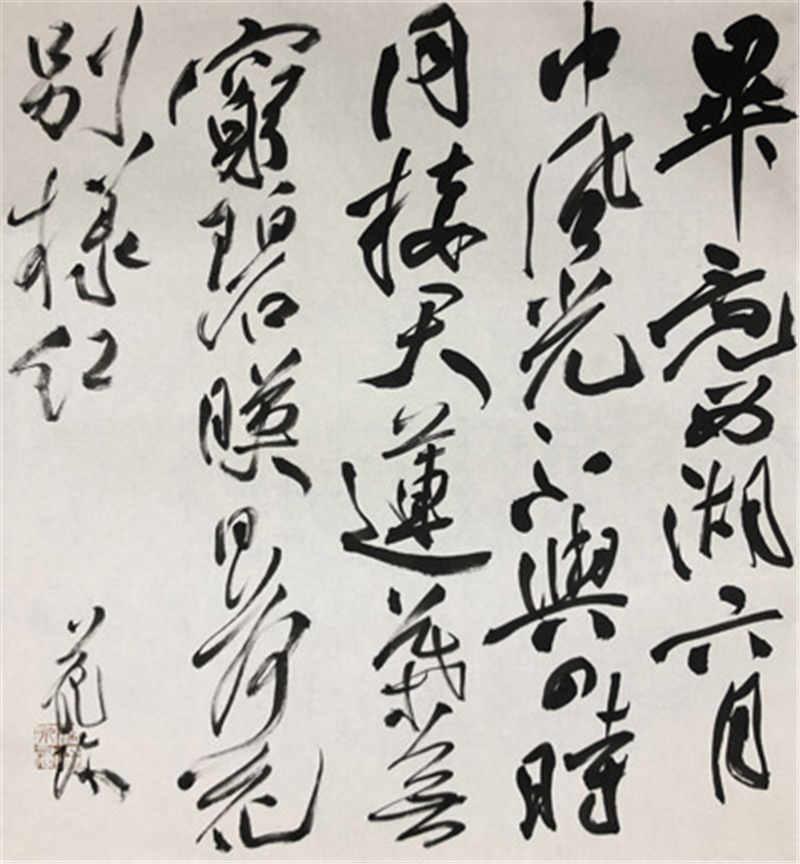 畢竟西湖六月
中風光不與四時
同接天蓮葉無
窮碧映日荷花
別樣紅